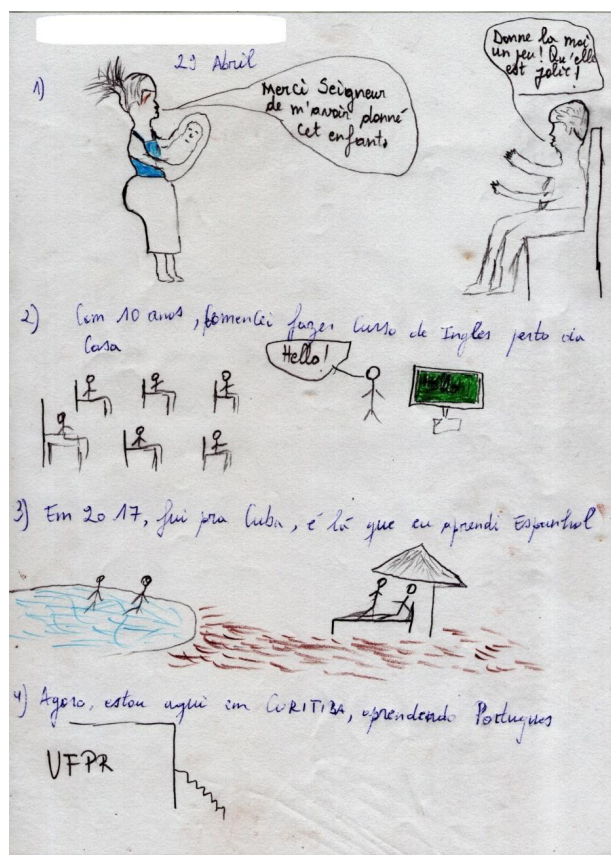 29 Abril
1)
Merci Seigneur
de m'avoir donné
cet enfant
Donne la moi
un peu! Qu'elle
est jolie!
2) Com 10 anos, comencei fazer Curso de Ingles perto da
Casa
Hello!
3) Em 2017, fui pra Cuba, é lá que eu aprendi Espanhol
4) Agora, estou aqui em CURITIBA, aprendendo Portugues
UFPR